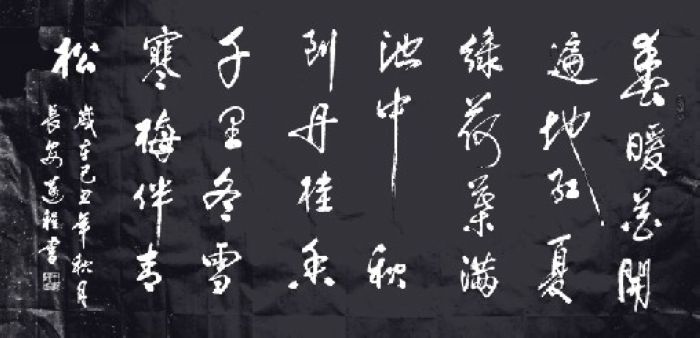 春暖花開
遍地红夏
緑荷葉满
池中秋
到丹桂香
千里冬雪
寒梅伴青
松
歲在己丑年秋月
長安書